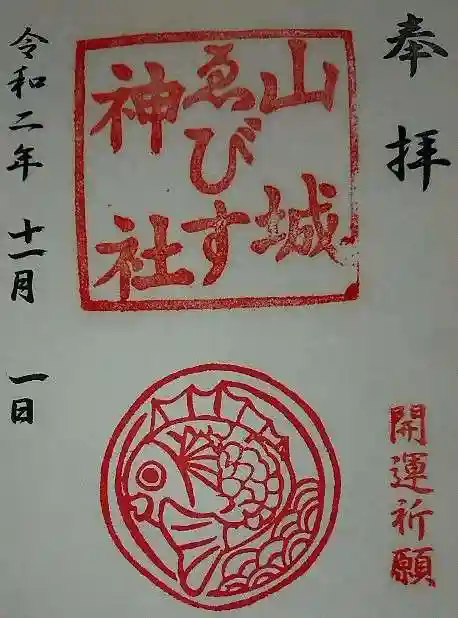 奉拝
開運祈願
山城
ゑびす
神社
令和二年 十一月 一日